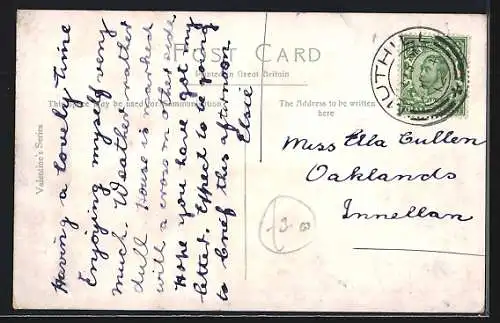 Having a lovely time
Enjoying myself very
much. Weather rather
dull House is marked
with a cross on other side.
Hope you have got my
letter. Expect to be going
to Crieff this afternoon
Elsie
POST CARD
Printed in Great Britain
This space may be used for communication
The Address to be written
here
Valentine's Series
MUTHILL
Miss Ella Cullen
Oaklands
Innellan